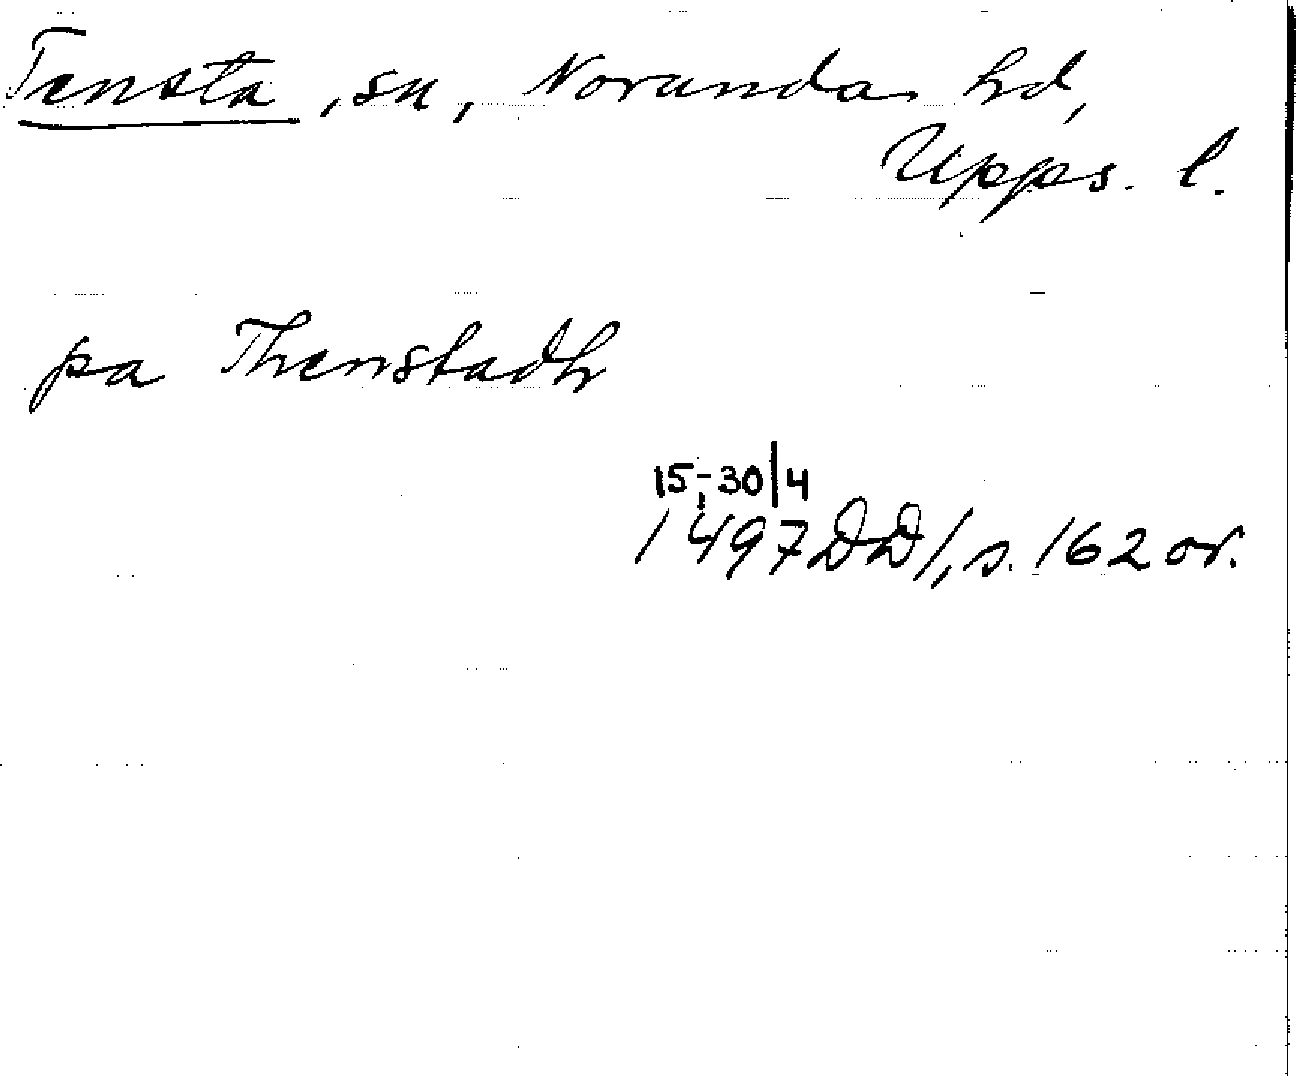 Tensta, sn, Norunda hd,
Upps. l.
pa Thenstadh
15-30/4
1497 DD1, s. 162 or.